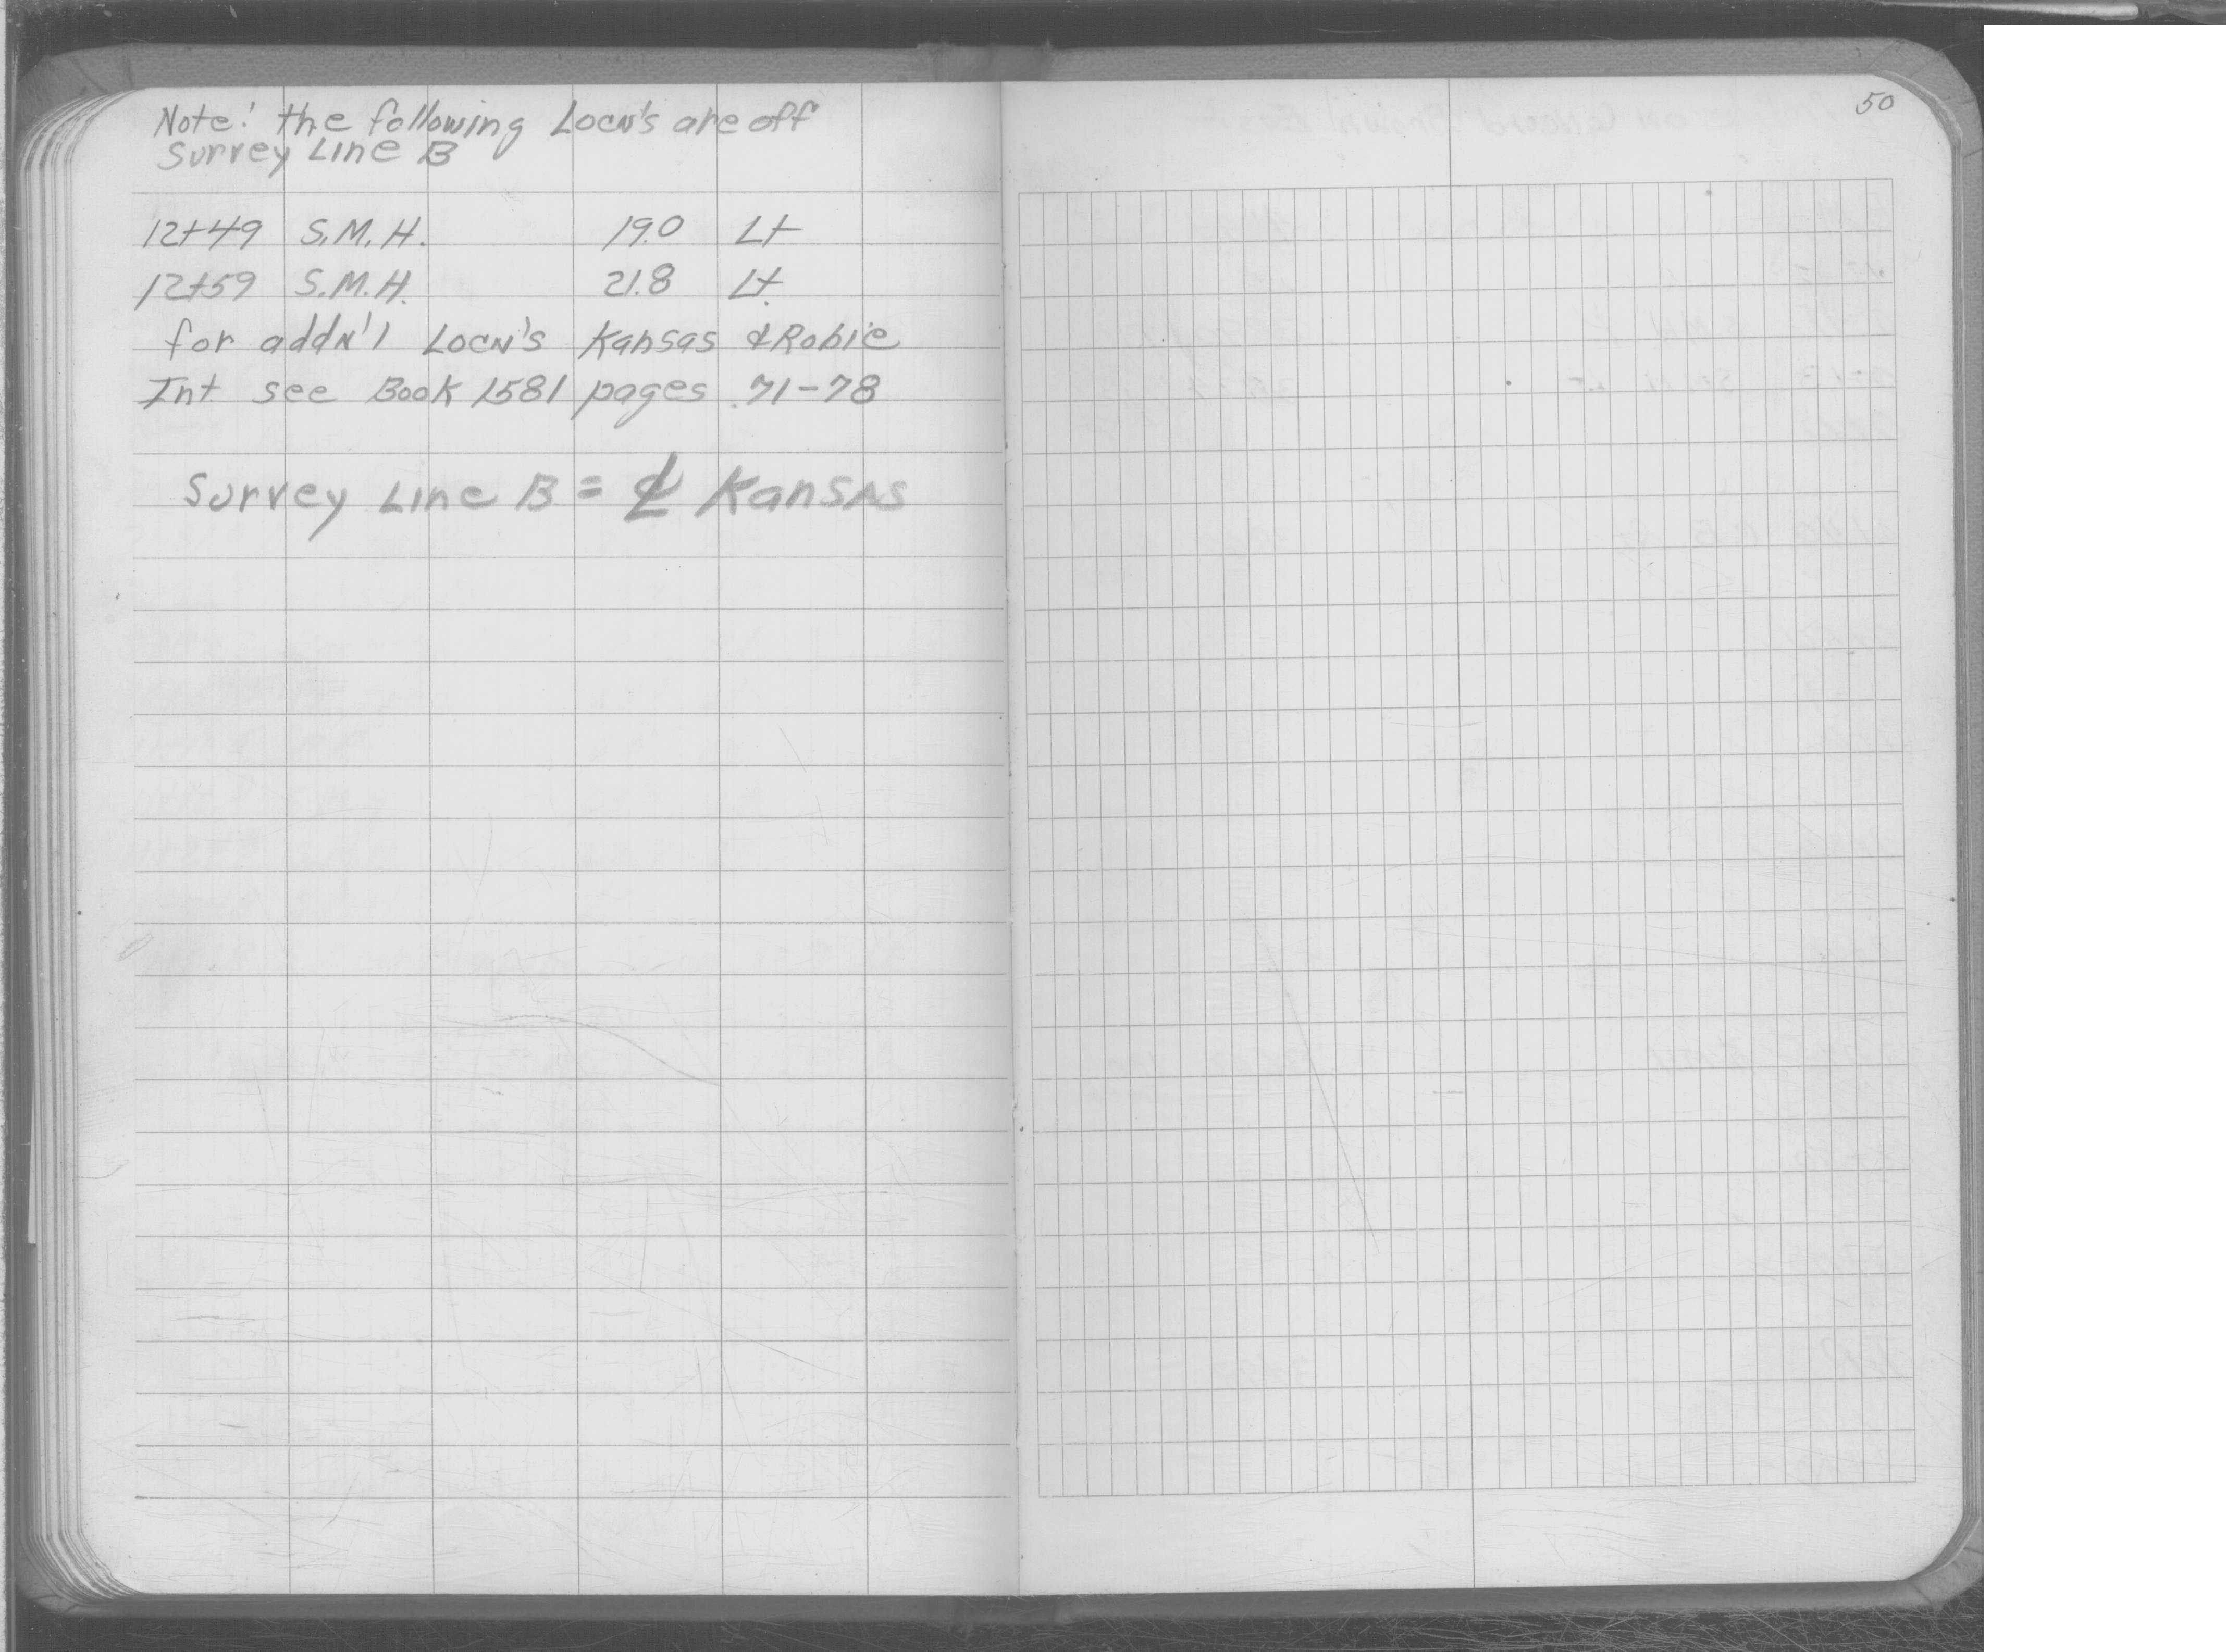 Note: the following Locn's are off
Survey Line B
12+49 S.M.H. 19.0 Lt
12+59 S.M.H. 21.8 Lt.
for addn'l Locn's Kansas & Robie
Int see Book 1581 pages 71-78
Survey Line B = ℄ Kansas
50